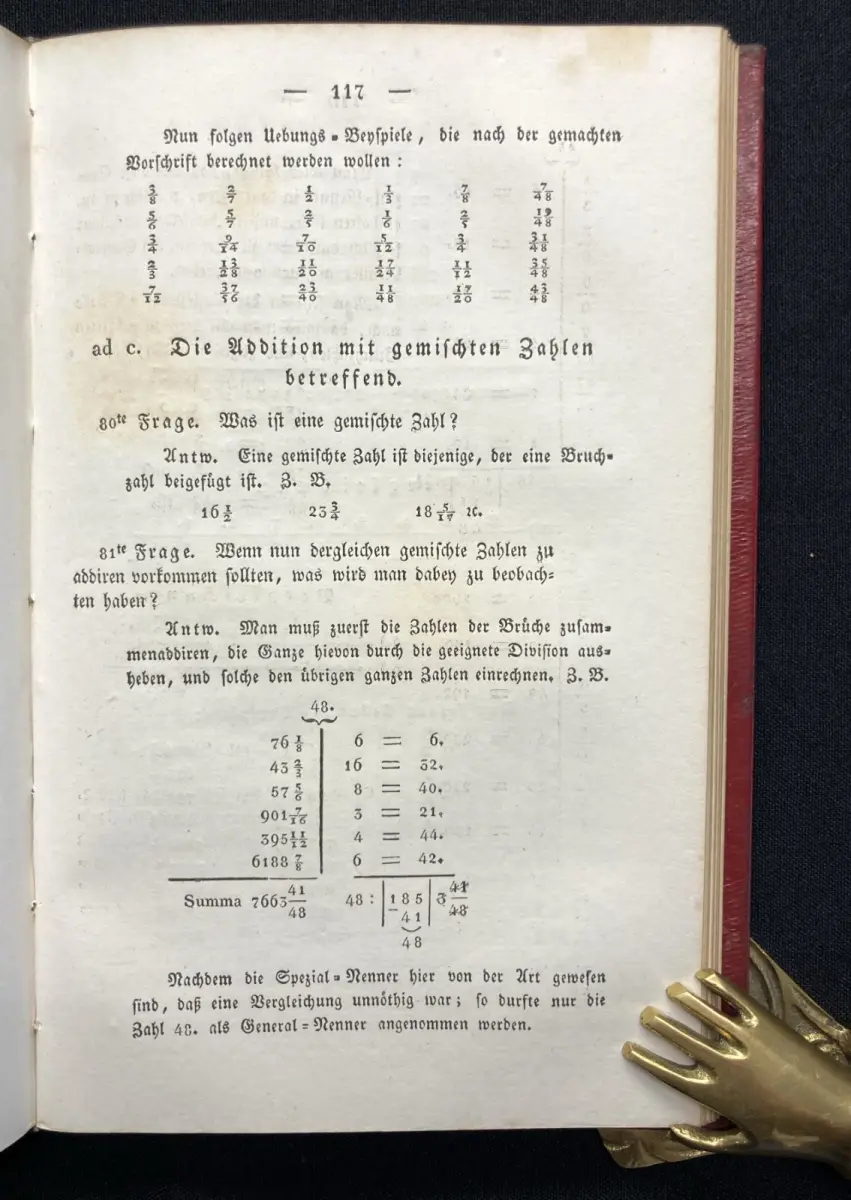 — 117 —
Nun folgen Uebungs=Beyspiele, die nach der gemachten
Vorschrift berechnet werden wollen:
3/8 2/7 1/2 1/3 7/8 7/48
5/6 5/7 2/5 1/6 2/5 19/48
3/4 9/14 7/10 5/12 3/4 31/48
2/3 13/28 11/20 17/24 11/12 35/48
7/12 37/56 23/40 11/48 17/20 43/48
ad c. Die Addition mit gemischten Zahlen
betreffend.
80te Frage. Was ist eine gemischte Zahl?
Antw. Eine gemischte Zahl ist diejenige, der eine Bruch=
zahl beigefügt ist. Z. B.
16 1/2 23 3/4 18 5/17 ꝛc.
81te Frage. Wenn nun dergleichen gemischte Zahlen zu
addiren vorkommen sollten, was wird man dabey zu beobach=
ten haben?
Antw. Man muß zuerst die Zahlen der Brüche zusam=
menaddiren, die Ganze hievon durch die geeignete Division aus=
heben, und solche den übrigen ganzen Zahlen einrechnen. Z. B.
48.
76 1/8 6 = 6.
43 2/3 16 = 32.
57 5/6 8 = 40.
901 7/16 3 = 21.
395 11/12 4 = 44.
6188 7/8 6 = 42.
Summa 7663 41/48 48 : | 185 | 3 41/48
41
48
Nachdem die Spezial=Nenner hier von der Art gewesen
sind, daß eine Vergleichung unnöthig war; so durfte nur die
Zahl 48. als General=Nenner angenommen werden.